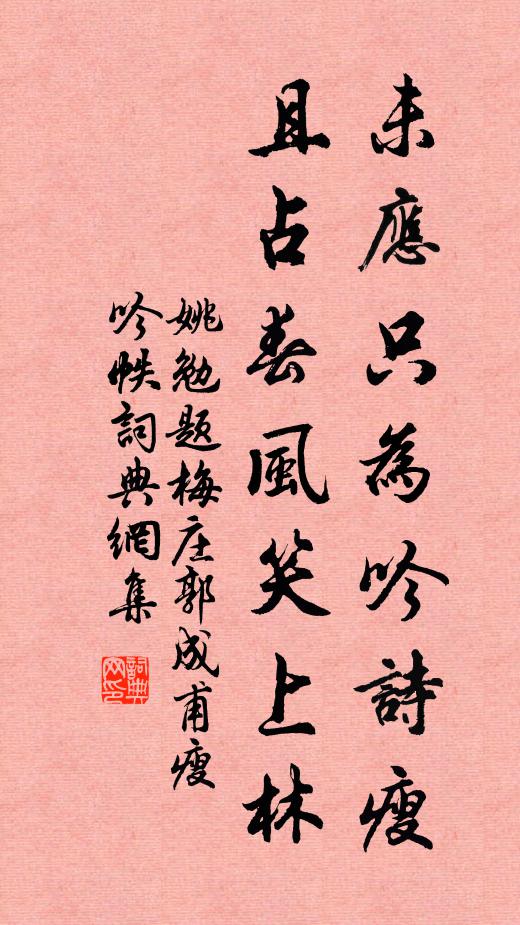 未應只為吟詩瘦
且占春風笑上林
姚勉題梅庄郭成甫瘦
吟帙詞典網集
詞典網印